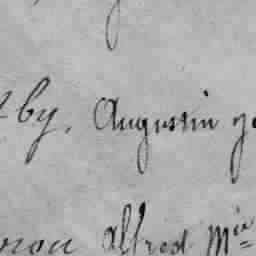 by, Augustin
Alfred Mie